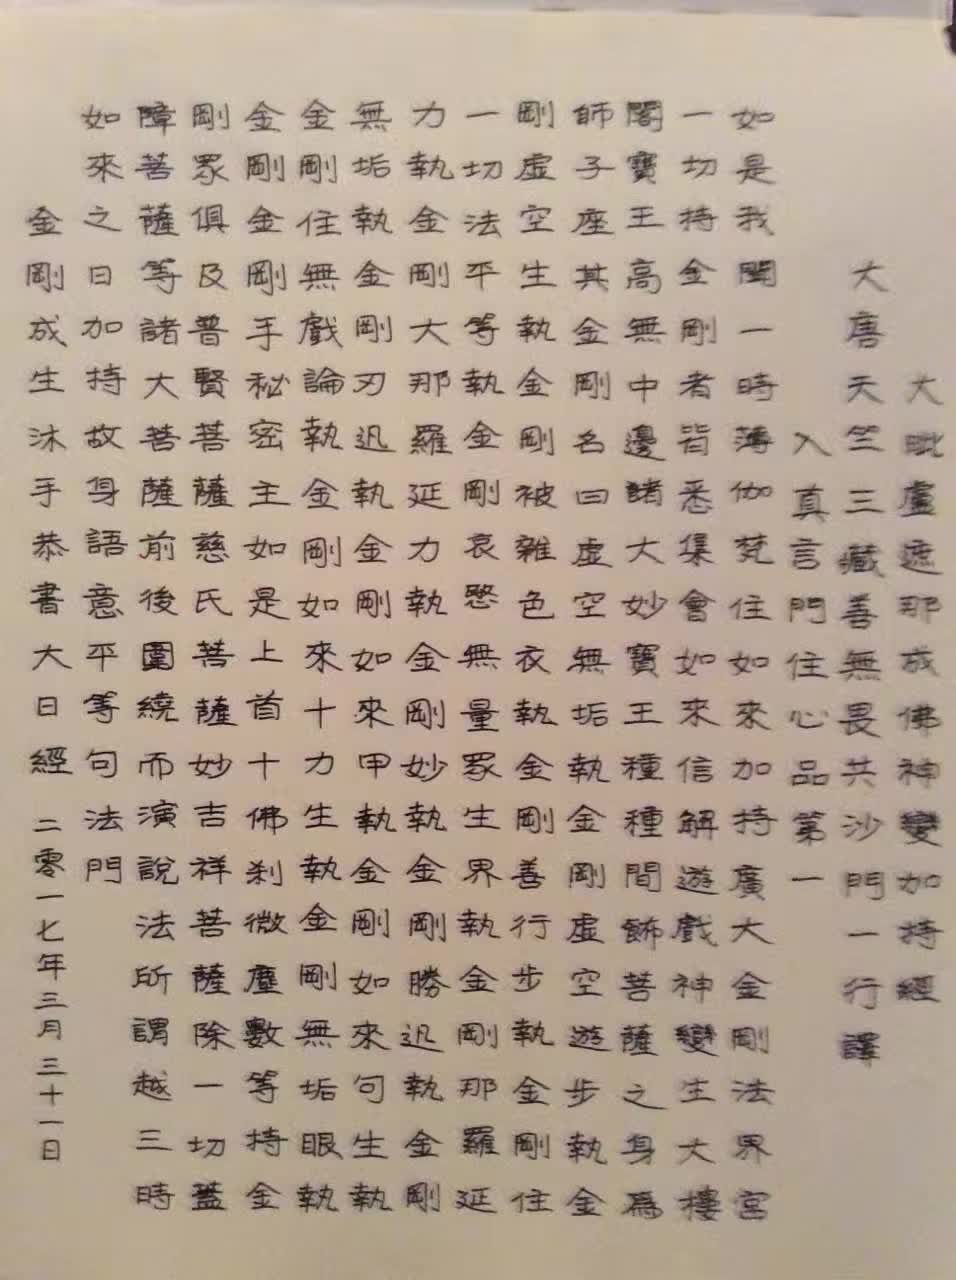 大毗盧遮那成佛神變加持經
大唐天竺三藏善無畏共沙門一行譯
入真言門住心品第一
如是我聞一時薄伽梵住如來加持廣大金剛法界宮
一切持金剛者皆悉集會如來信解遊戲神變生大樓
閣寶王高無中邊諸大妙寶王種種間飾菩薩之身為
師子座其金剛名曰虛空無垢執金剛虛空遊步執金
剛虛空生執金剛被雜色衣執金剛善行步執金剛住
一切法平等執金剛哀愍無量眾生界執金剛那羅延
力執金剛大那羅延力執金剛妙執金剛勝迅執金剛
無垢執金剛刃迅執金剛如來甲執金剛如來句生執
金剛住無戲論執金剛如來十力生執金剛無垢眼執
金剛金剛手秘密主如是上首十佛剎微塵數等持金
剛眾俱及普賢菩薩慈氏菩薩妙吉祥菩薩除一切蓋
障菩薩等諸大菩薩前後圍繞而演說法所謂越三時
如來之日加持故身語意平等句法門
金剛成生沐手恭書大日經 二零一七年三月三十一日